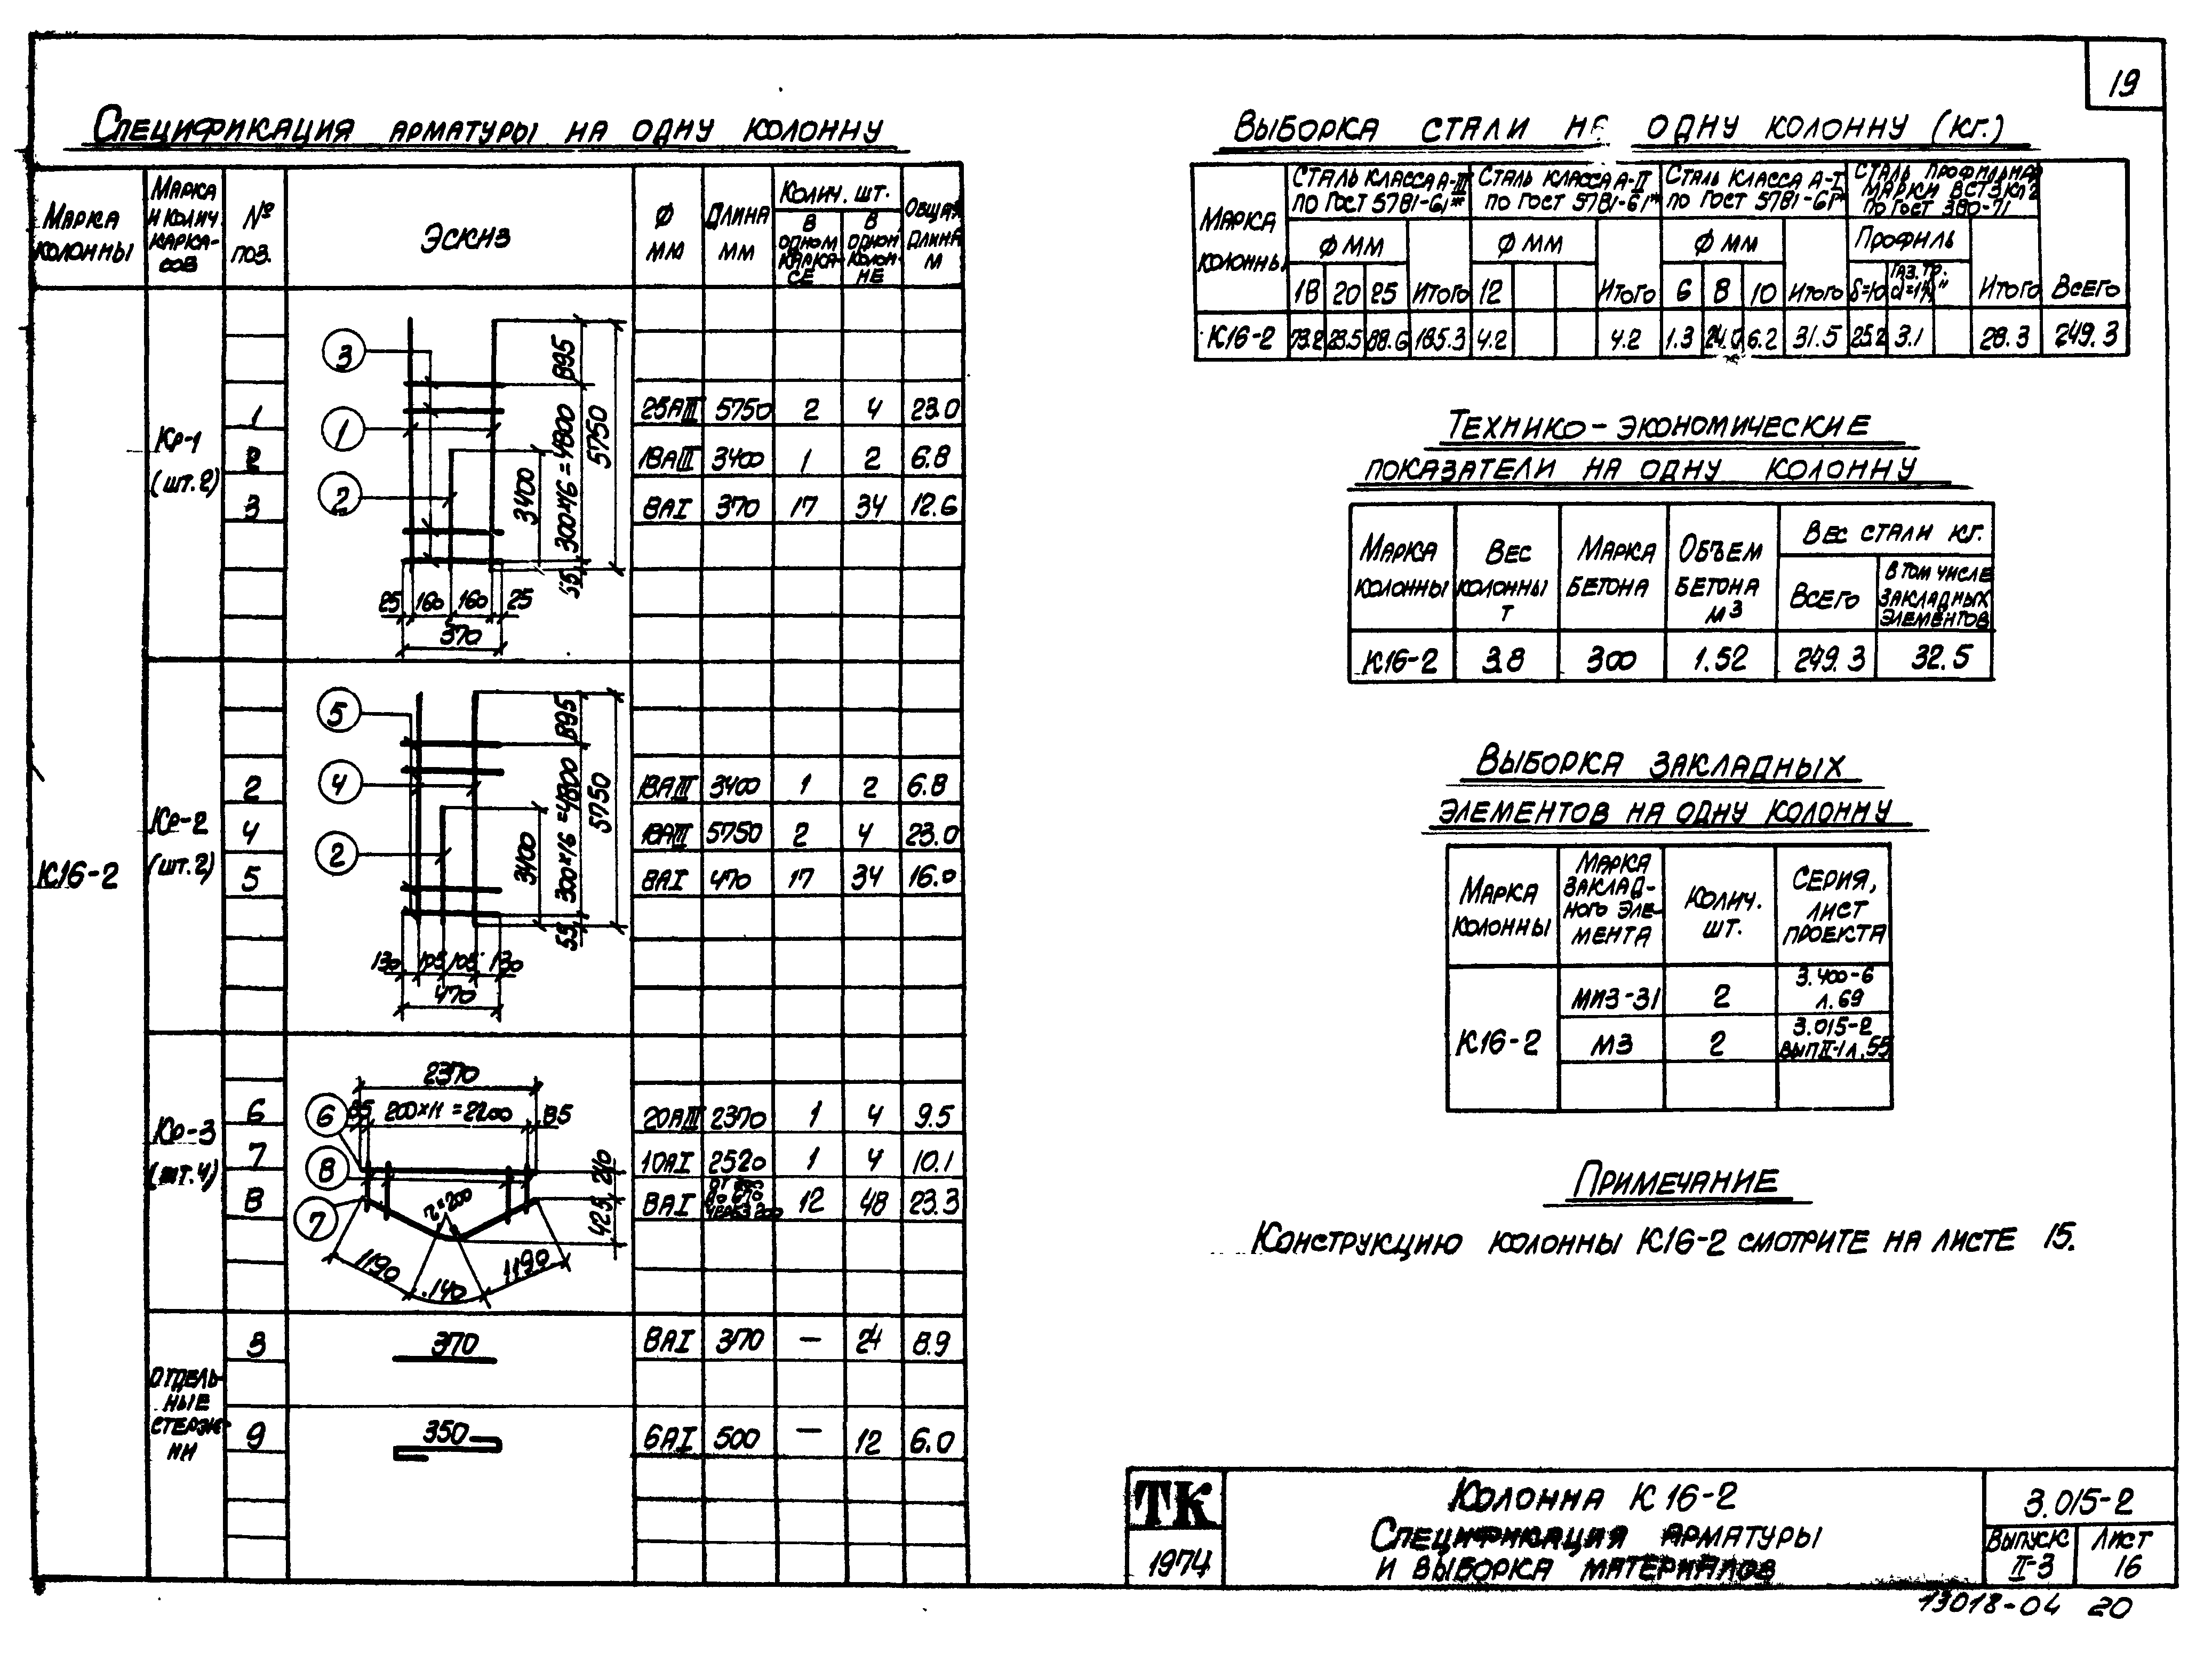 19
Спецификация арматуры на одну колонну
Марка колонны
Марка и колич каркасов
№ поз.
Эскиз
Ф мм
Длина мм
Колич. шт.
в одном каркасе
в одной колонне
Общая длина м
К16-2
Кр-1 (шт.2)
1 25АIII 5750 2 4 23.0
2 18АIII 3400 1 2 6.8
3 8АI 370 17 34 12.6
3
1
2
895
300×16=4800
5750
3400
55
25 160 160 25
370
Кр-2 (шт.2)
2 18АIII 3400 1 2 6.8
4 18АIII 5750 2 4 23.0
5 8АI 470 17 34 16.0
5
4
2
895
300×16=4800
5750
3400
55
130 105 105 130
470
Кр-3 (шт.4)
6 20АIII 2370 1 4 9.5
7 10АI 2520 1 4 10.1
8 8АI до 670 через 200 12 48 23.3
2370
85 200×11=2200 85
6
8
7
r=200
240
425
1190 140 1190
Отдельные стержни
3 370 8АI 370 — 24 8.9
9 350 6АI 500 — 12 6.0
Выборка стали на одну колонну (кг.)
Марка колонны
Сталь класса А-III по ГОСТ 5781-61*
Сталь класса А-II по ГОСТ 5781-61*
Сталь класса А-I по ГОСТ 5781-61*
Сталь профильная марки ВСТ3КП2 по ГОСТ 380-71
Ф мм Ф мм Ф мм Профиль
18 20 25 Итого 12 Итого 6 8 10 Итого δ=10 Газ. тр. Итого Всего
К16-2 73.2 23.5 88.6 185.3 4.2 4.2 1.3 24.0 6.2 31.5 25.2 3.1 28.3 249.3
Технико-экономические
показатели на одну колонну
Марка колонны
Вес колонны т
Марка бетона
Объем бетона м3
Вес стали кг.
Всего
в том числе закладных элементов
К16-2 3.8 300 1.52 249.3 32.5
Выборка закладных
элементов на одну колонну
Марка колонны
Марка закладного элемента
Колич. шт.
Серия, лист проекта
К16-2
МИЗ-31 2 3.400-6 л.69
М3 2 3.015-2 вып II-1 л.55
Примечание
Конструкцию колонны К16-2 смотрите на листе 15.
ТК
1974
Колонна К16-2
Спецификация арматуры
и выборка материалов
3.015-2
Выпуск II-3
Лист 16
13018-04 20